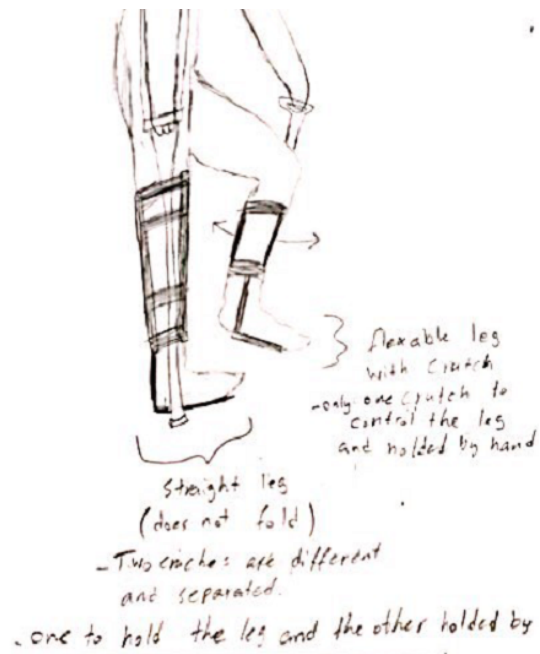 flexable leg
with Crutch
- only one crutch to
control the leg
and holded by hand
straight leg
(does not fold)
- Two cruches are different
and separated.
- one to hold the leg and the other holded by